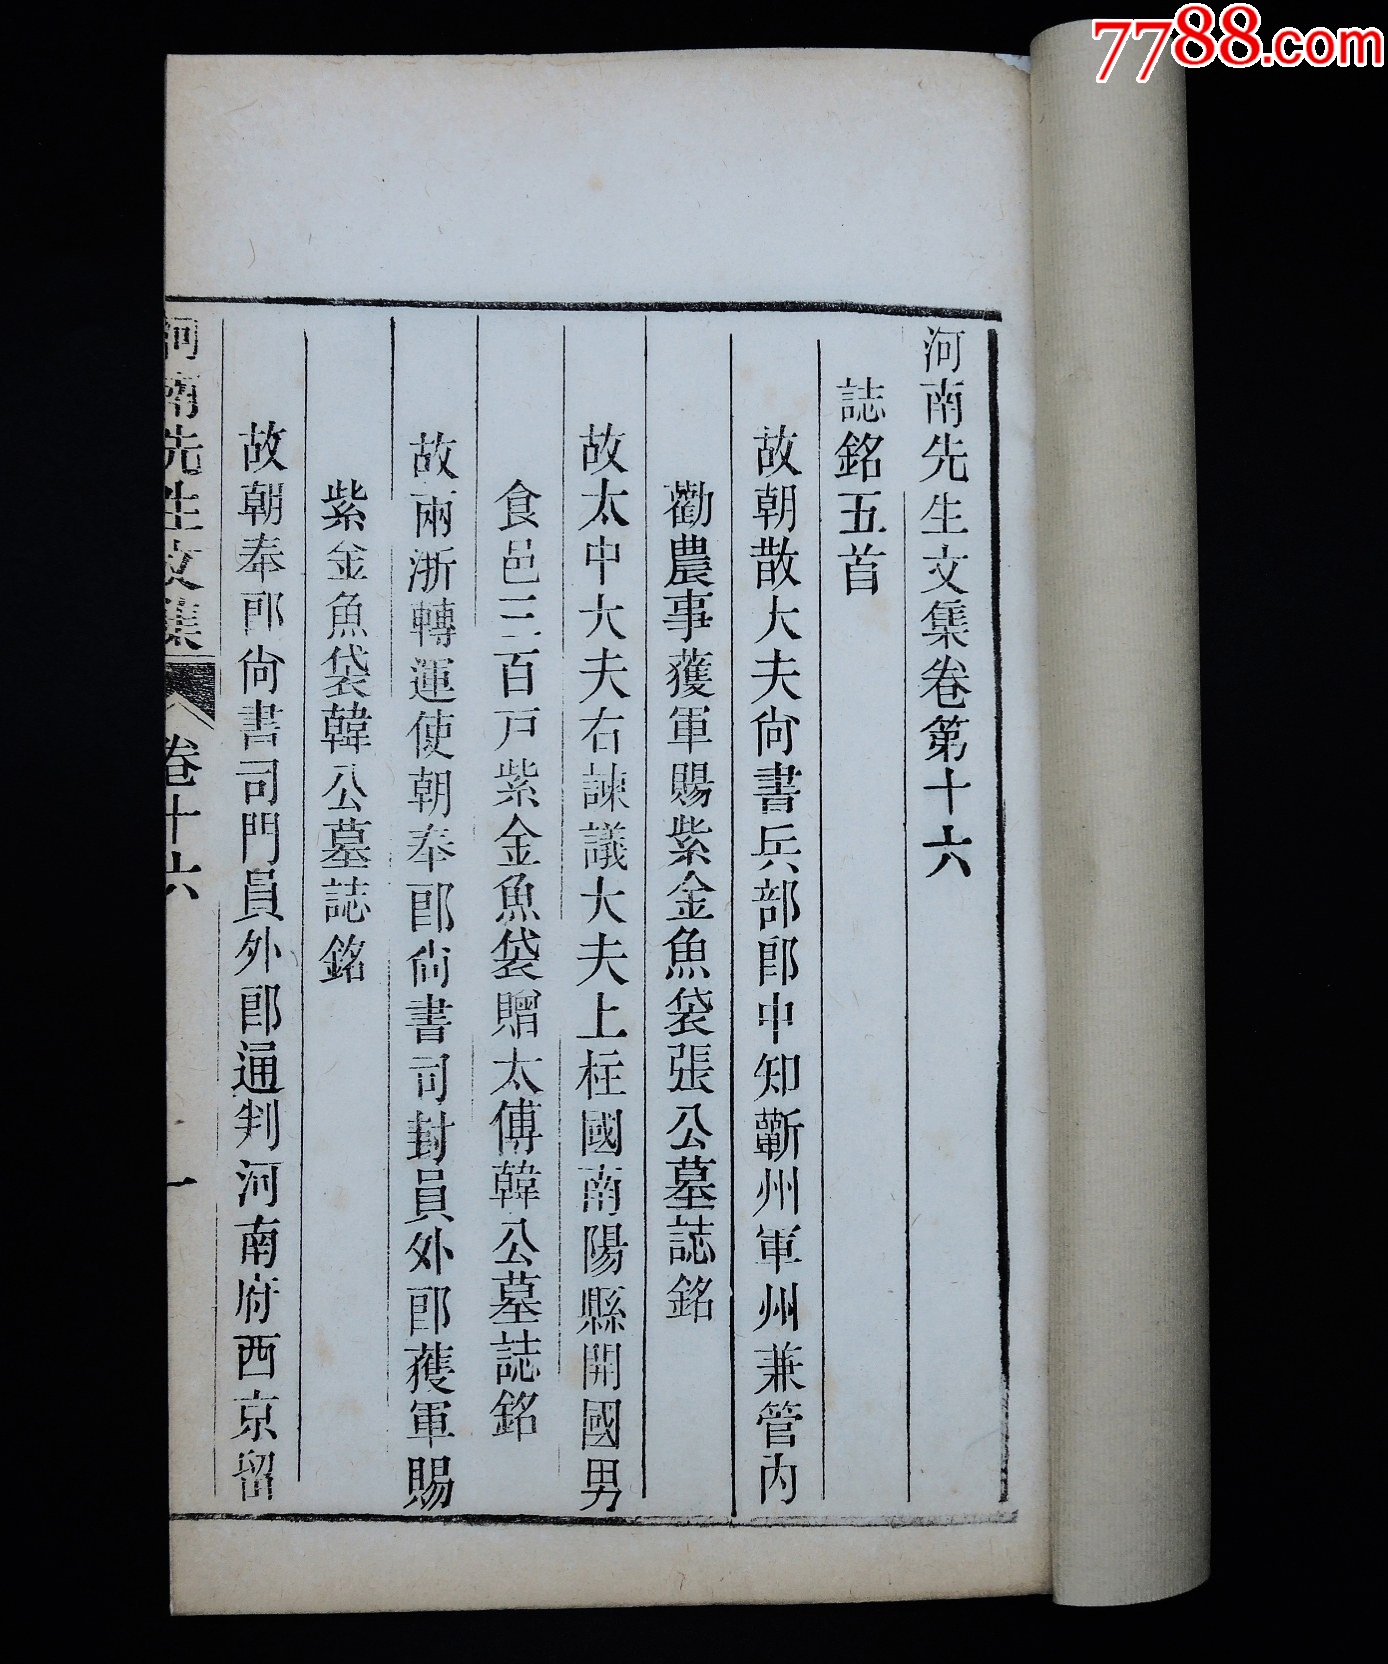 7788.com
河南先生文集卷第十六
誌銘五首
故朝散大夫尙書兵部郎中知蘄州軍州兼管內
勸農事護軍賜紫金魚袋張公墓誌銘
故太中大夫右諫議大夫上柱國南陽縣開國男
食邑三百戸紫金魚袋贈太傅韓公墓誌銘
故兩浙轉運使朝奉郎尙書司封員外郎護軍賜
紫金魚袋韓公墓誌銘
故朝奉郎尙書司門員外郎通判河南府西京留
河南先生文集 卷十六 一